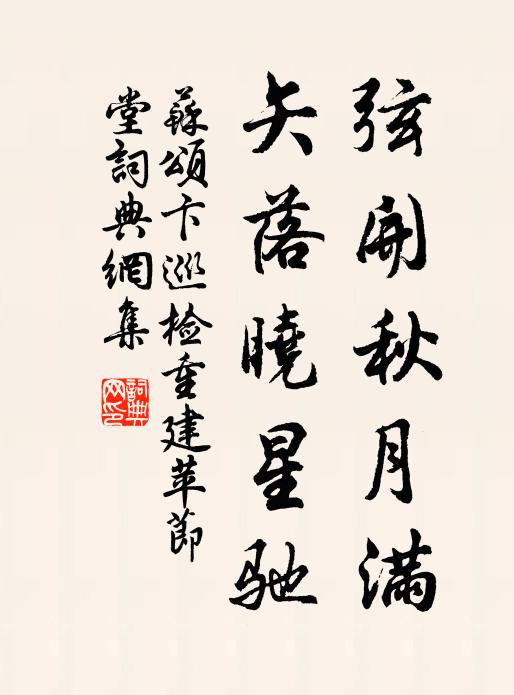 弦開秋月滿
矢落曉星馳
蘇頌卞巡檢重建苹節
堂詞典網集
詞典網印